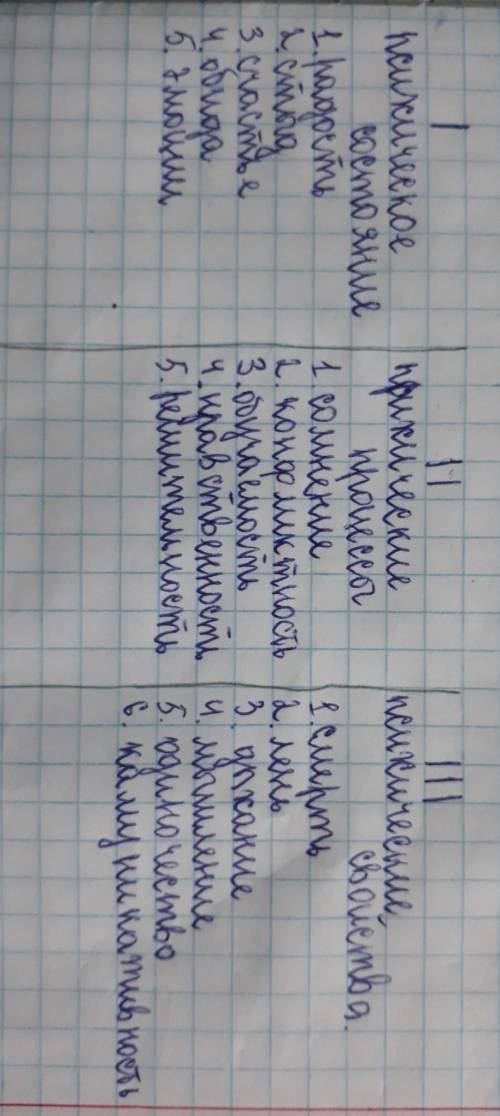 I
психическое
состояние
1. радость
2. стыд
3. счастье
4. обида
5. эмоции
II
психические
процессы
1. сомнение
2. конфликтность
3. обучаемость
4. нравственность
5. решительность
III
психические
свойства.
1. смерть
2. лень
3. дыхание
4. мышление
5. одиночество
6. коммуникативность